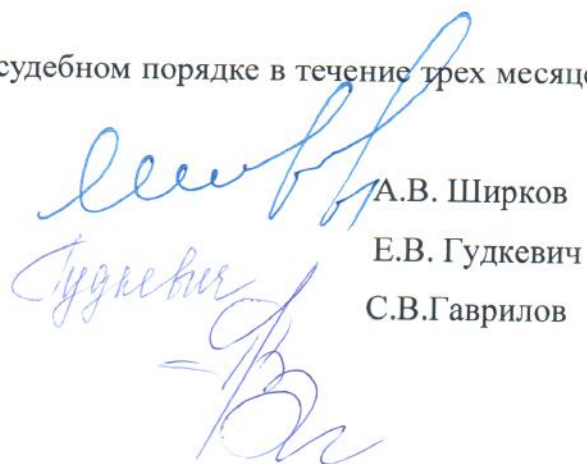 судебном порядке в течение трех месяц
А.В. Ширков
Гудкевич Е.В. Гудкевич
С.В.Гаврилов